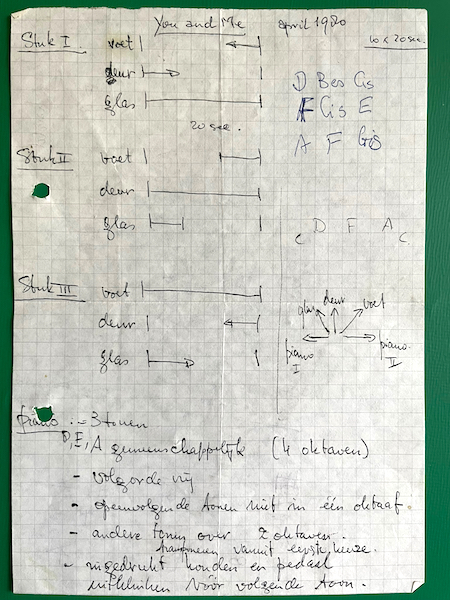 You and Me april 1980
Stuk I voet 10 x 20 sec.
deur
glas
20 sec.
D Bes Cis
F Cis E
A F Gis
Stuk II voet
deur
glas
C D F A C
Stuk III voet
deur
glas
glas deur voet
piano I piano II
piano : - 3 tonen
D, E, A gemeenschappelijk (4 oktaven)
- volgorde vrij
- opeenvolgende tonen niet in één oktaaf
- andere tonen over 2 oktaven.
transponeren vanuit eerste keuze.
- ingedrukt houden en pedaal
uitklinken vóór volgende toon.